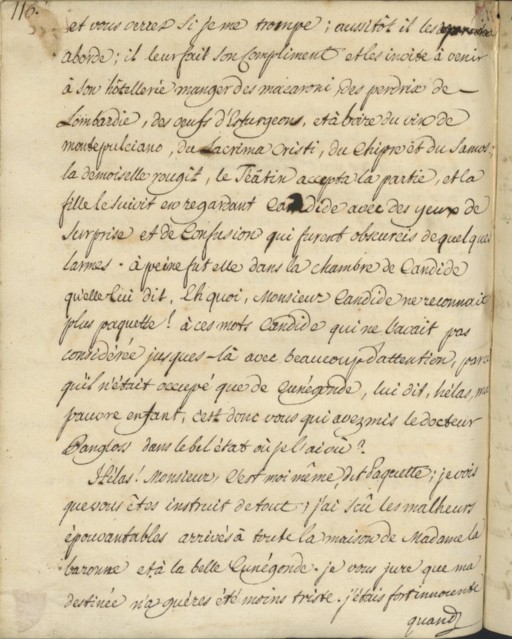 116.
et vous verrez si je me trompe; aussitôt il les
aborde; il leur fait son compliment et les invite à venir
à son hôtellerie manger des macaroni, des perdrix de
Lombardie, des œufs d'Esturgeons, et à boire du vin de
montepulciano, du Lacrima Cristi, du Chipre et du Samos;
la demoiselle rougit, le Téatin accepta la partie, et la
fille le suivit en regardant Candide avec des yeux de
surprise et de Confusion qui furent obscurcis de quelques
larmes. à peine fut elle dans la chambre de Candide
qu'elle Lui dit, Eh quoi, Monsieur Candide ne reconnait
plus paquette! à ces mots Candide qui ne l'avait pas
considérée jusques-là avec beaucoup d'attention, parce
qu'il n'était occupé que de Cunégonde, lui dit, hélas, ma
pauvre enfant, c'est donc vous qui avez mis le docteur
Pangloss dans le bel état où je l'ai vû?
Hélas! Monsieur, C'est moi même dit Paquette; je vois
que vous êtes instruit de tout, j'ai sçû les malheurs
épouvantables arrivés à toute la maison de Madame la
baronne et à la belle Cunégonde. je vous jure que ma
destinée n'a guères été moins triste. j'étais fort innocente
quand